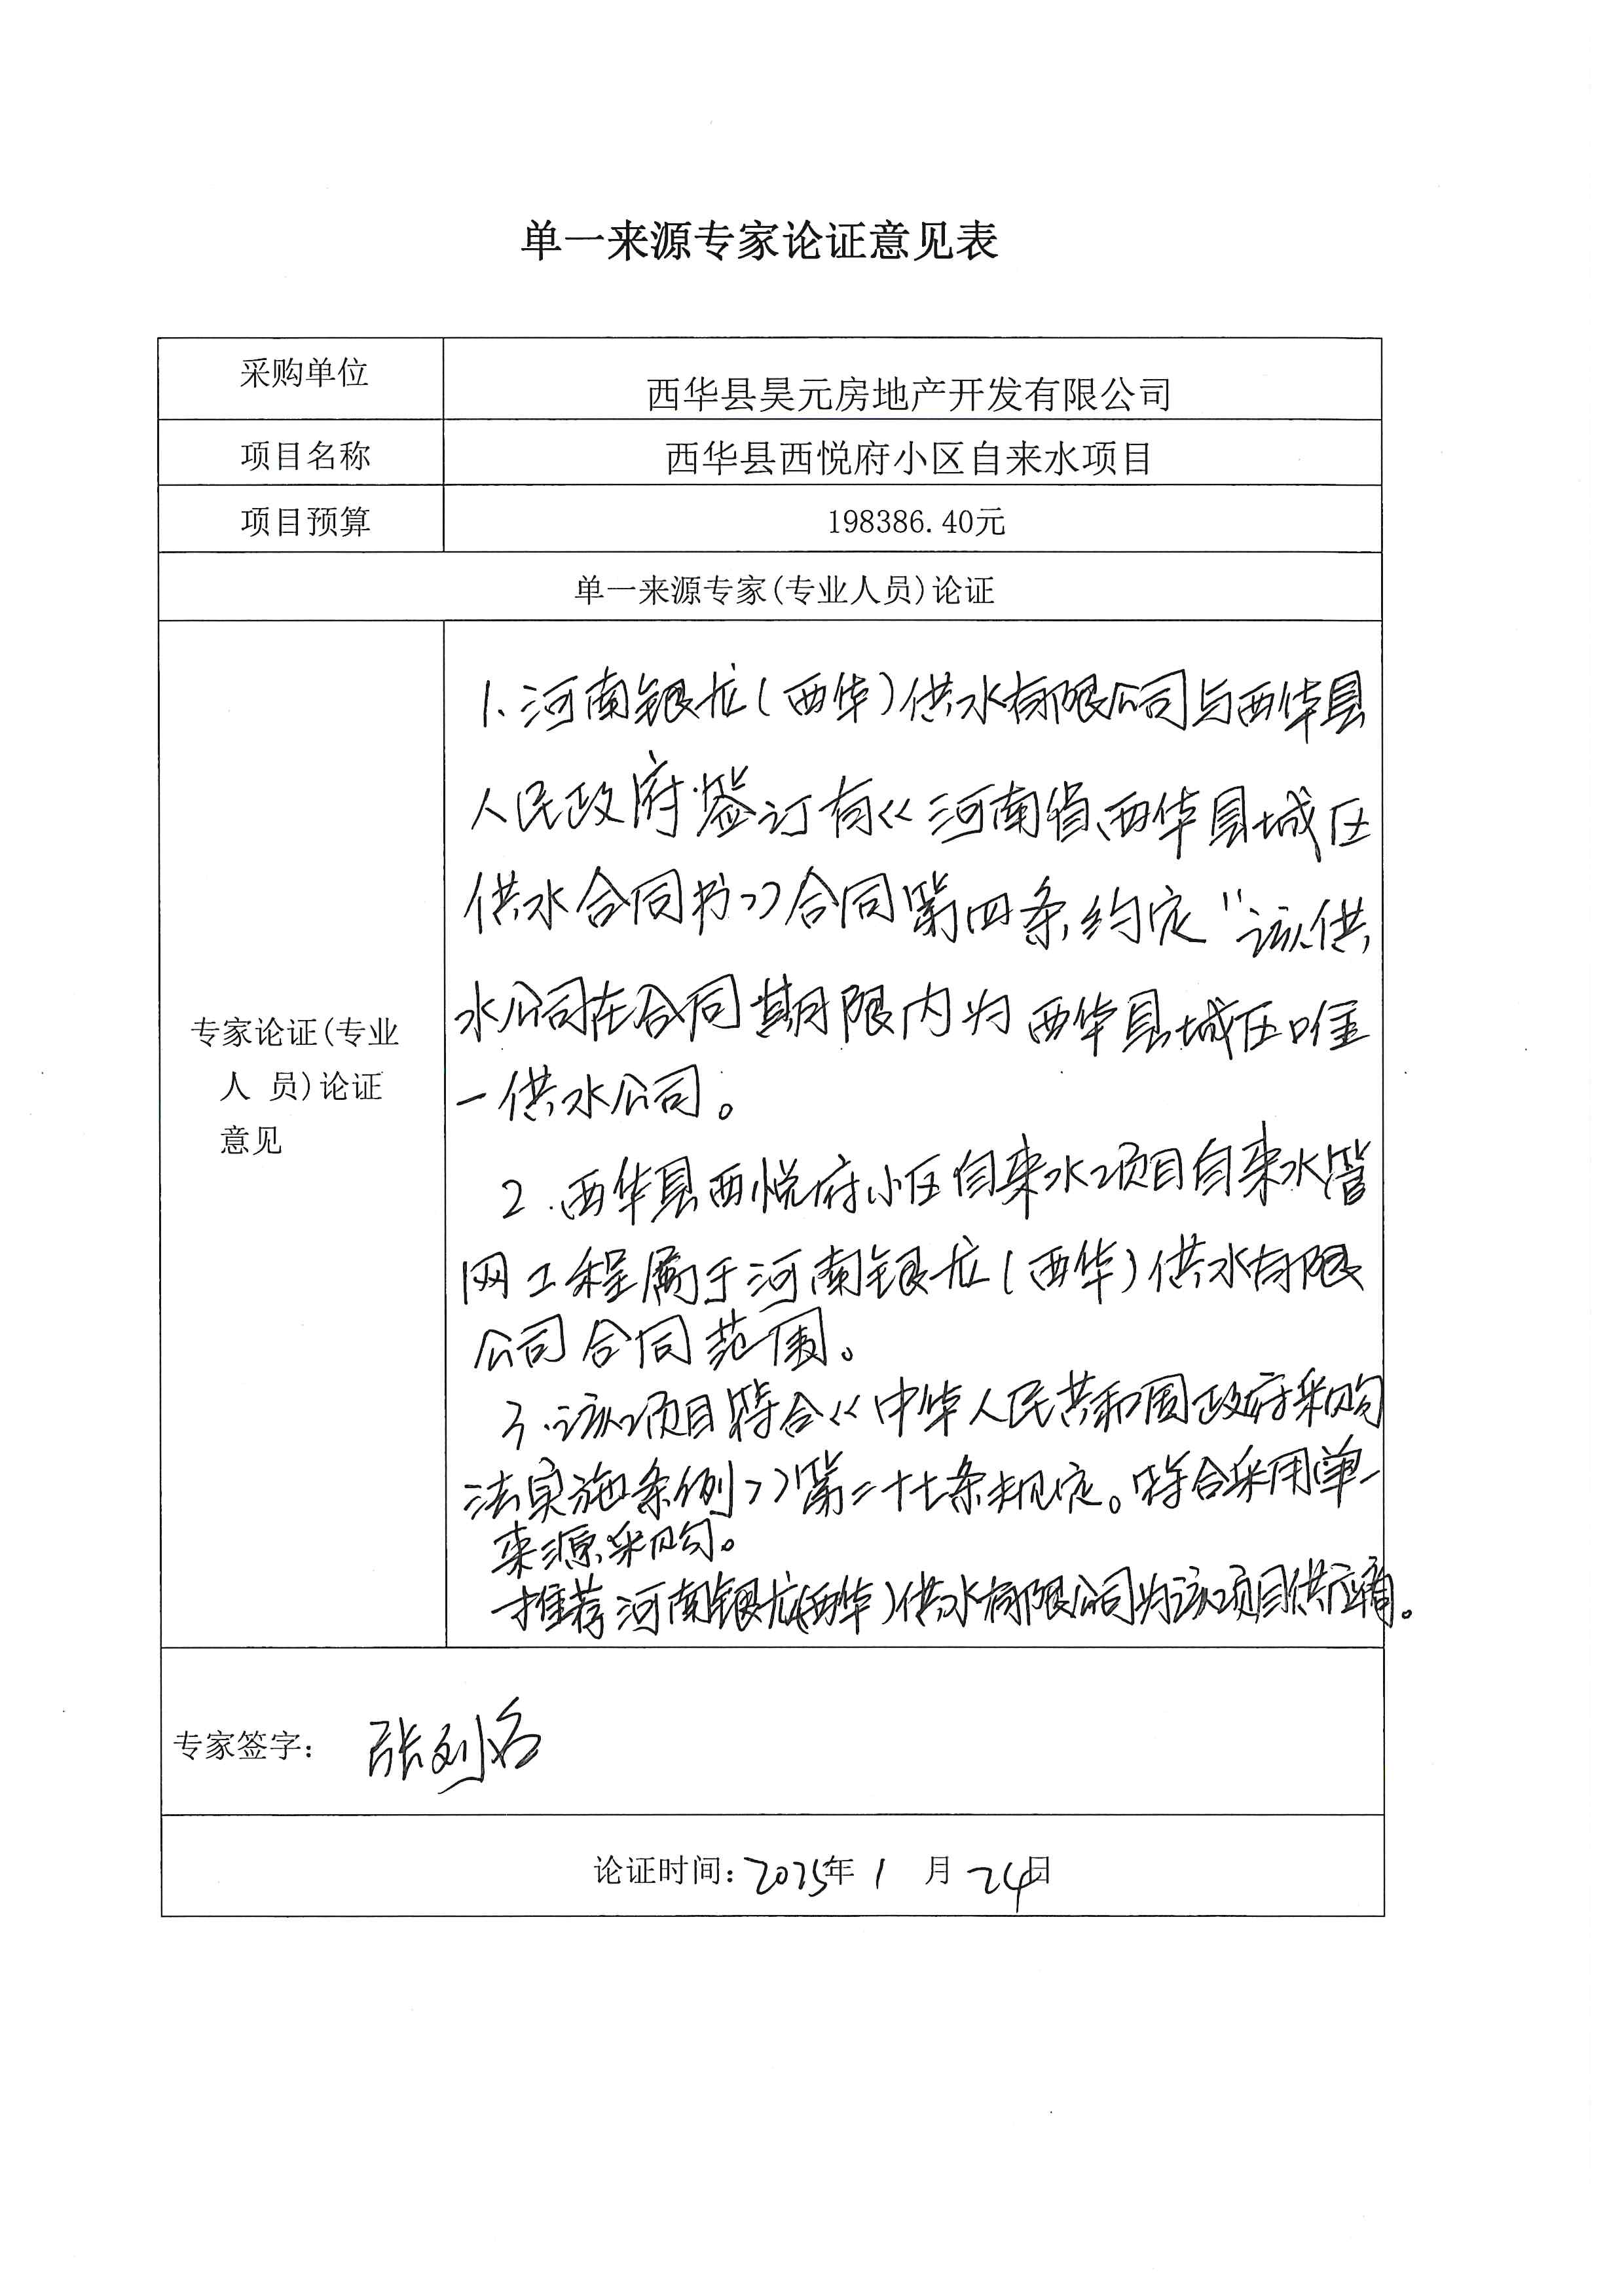 单一来源专家论证意见表
采购单位
西华县昊元房地产开发有限公司
项目名称
西华县西悦府小区自来水项目
项目预算
198386.40元
单一来源专家(专业人员)论证
专家论证(专业
人 员)论证
意见
1.河南银龙(西华)供水有限公司与西华县
人民政府签订有《河南省西华县城区
供水合同书》合同第四条约定"该供
水公司在合同期限内为西华县城区唯
一供水公司。
2.西华县西悦府小区自来水项目自来水管
网工程属于河南银龙(西华)供水有限
公司合同范围。
3.该项目符合《中华人民共和国政府采购
法实施条例》第二十七条规定。符合采用单一
来源采购。
推荐河南银龙(西华)供水有限公司为该项目供应商。
专家签字:
论证时间:2025年1月24日